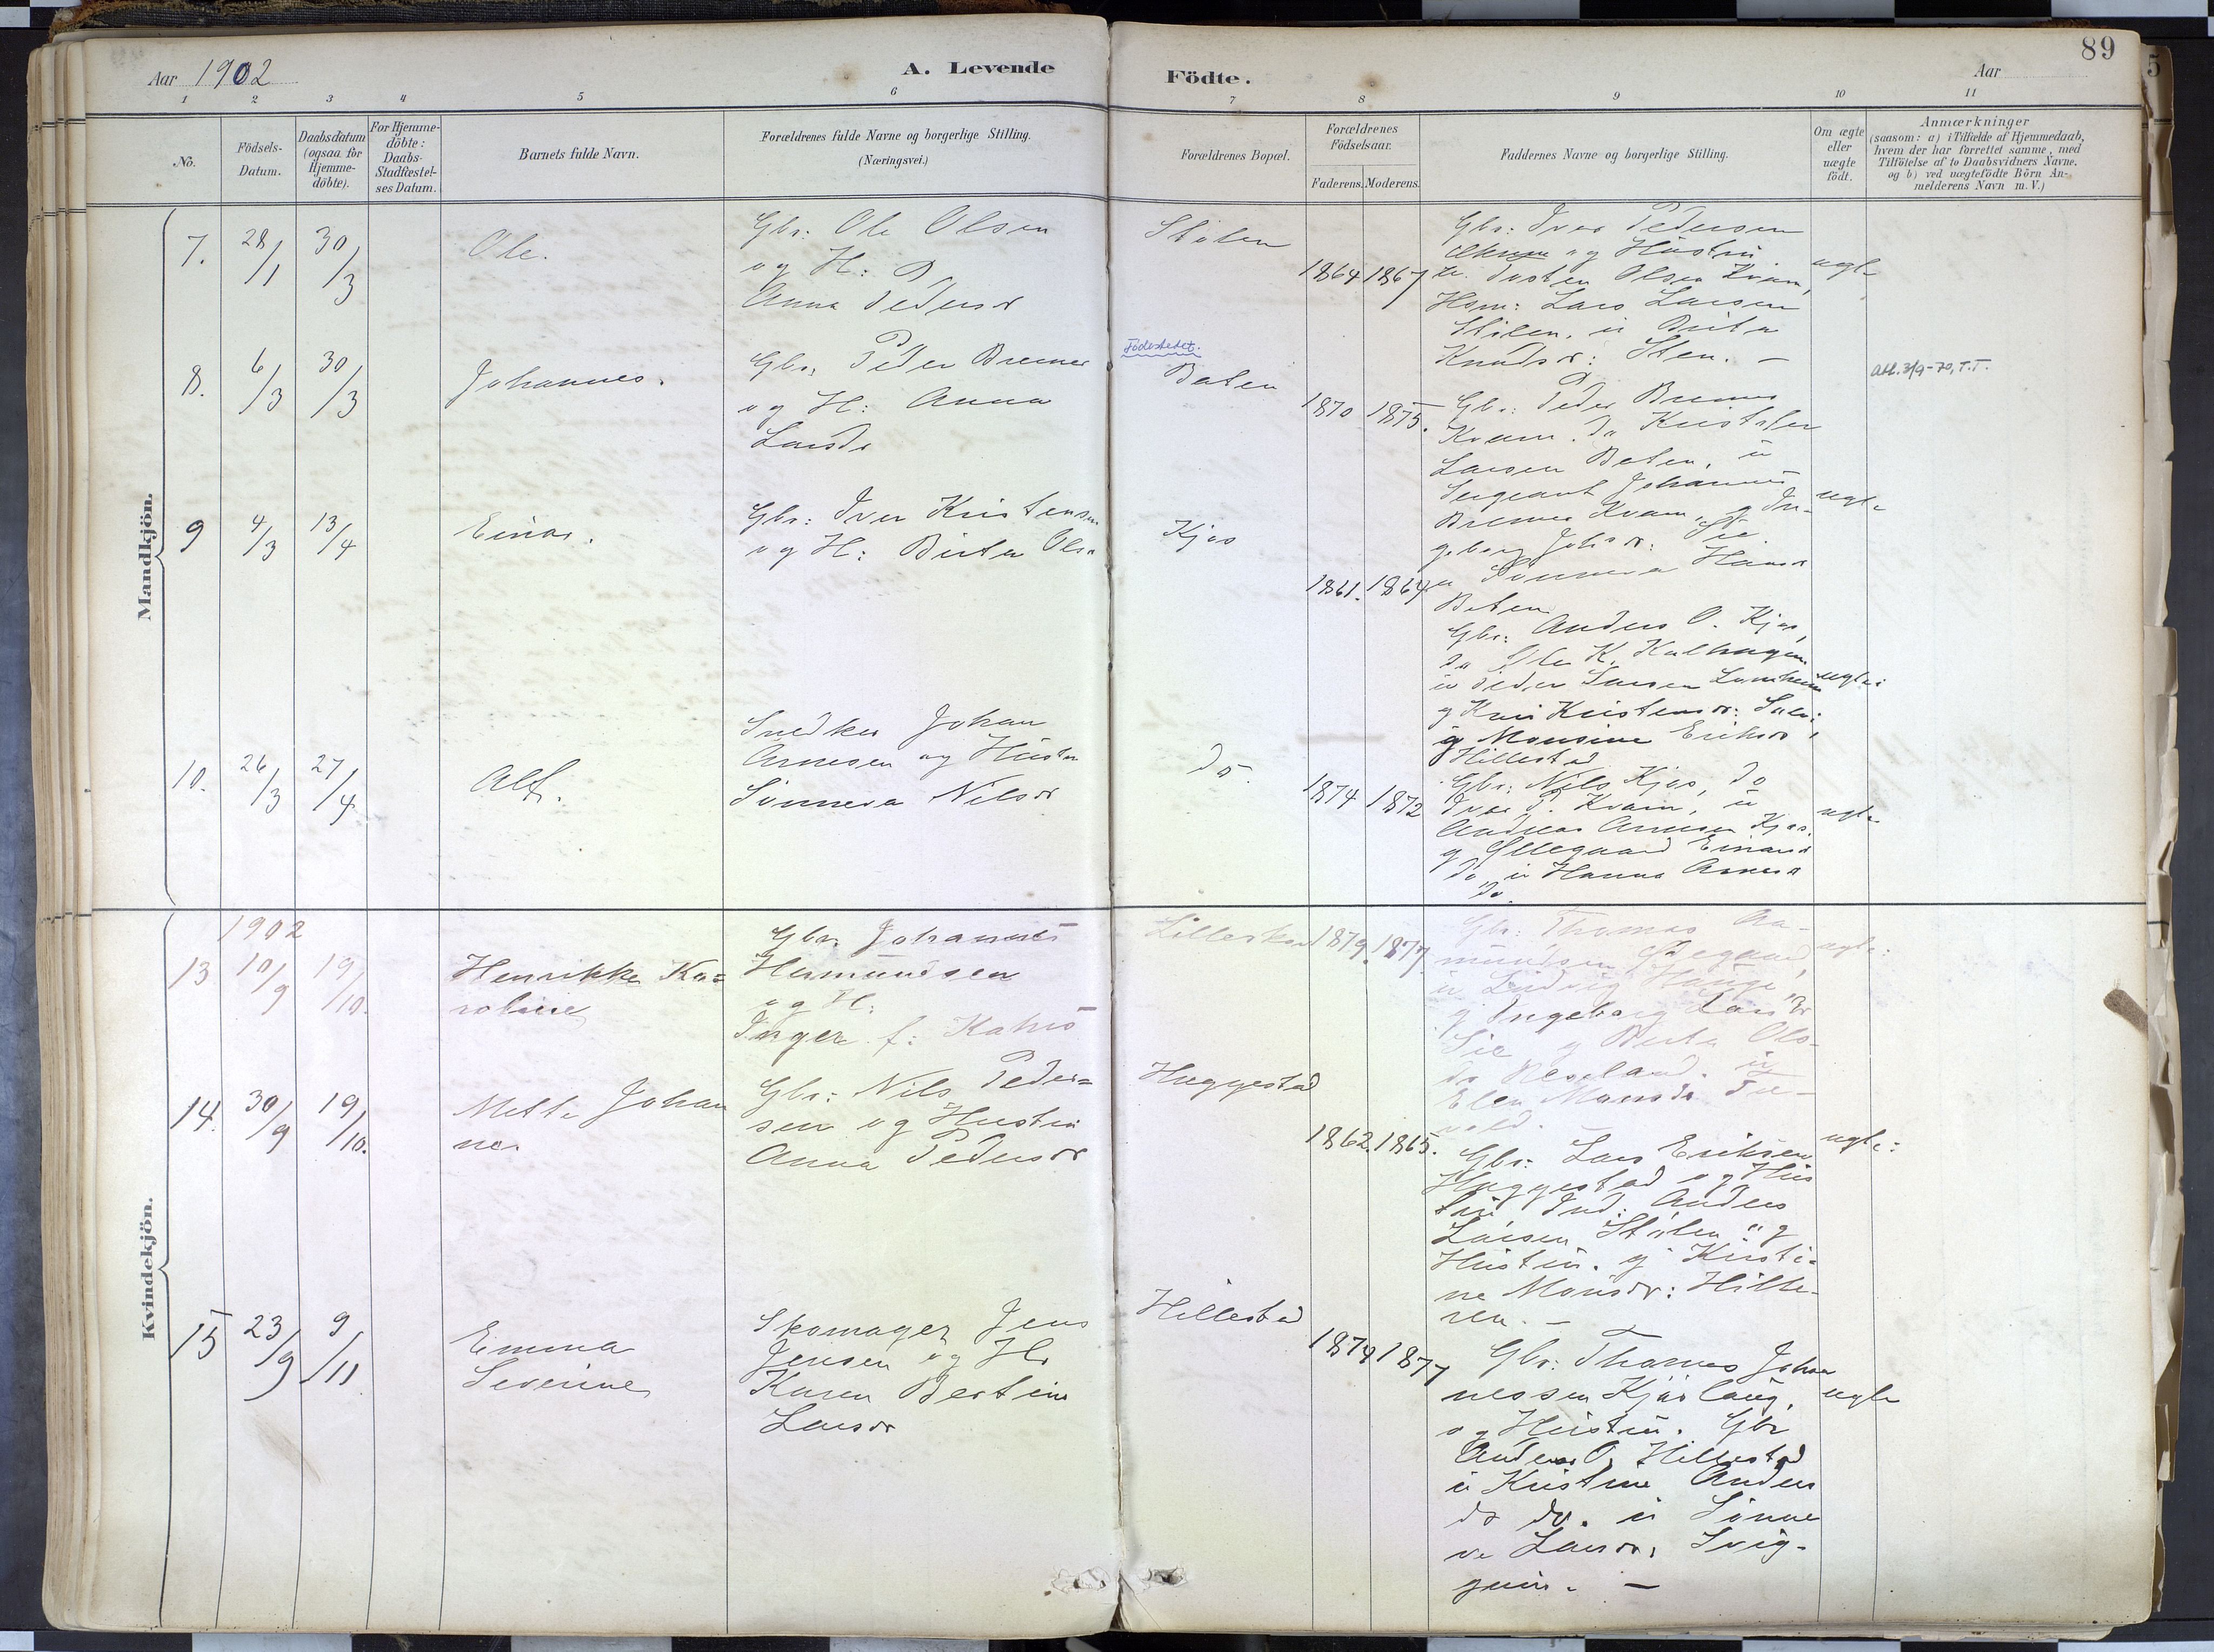 89
Aar 1902
A. Levende
Födte.
Aar
1 2 3 4 5 6 7 8 9 10 11
No.
Födsels-
Datum.
Daabsdatum
(ogsaa for
Hjemme-
döbte).
For Hjemme-
döbte:
Daabs-
Stadfæstel-
ses Datum.
Barnets fulde Navn.
Forældrenes fulde Navne og borgerlige Stilling.
(Næringsvei.)
Forældrenes Bopæl.
Forældrenes
Födselsaar.
Faderens.
Moderens.
Faddernes Navne og borgerlige Stilling.
Om ægte
eller
uægte
födt.
Anmærkninger
(saasom: a) i Tilfælde af Hjemmedaab,
hvem der har forrettet samme, med
Tilföielse af to Daabsvidners Navne.
og b) ved uægtefödte Börn An-
melderens Navn m. V.)
Mandkjön.
7. 28/1 30/3
Ole.
Gbr: Ole Olsen
og H:
Anna Pedersdr
Stölen
1864 1867
Gbr: Iver Pedersen
og Hustru
Olsen Kvam,
Hsm: Lars Larsen
Stölen, u Brita
Knudsdr: Sten. —
ægte
8. 6/3 30/3
Johannes.
Gbr, Peder Bremer
og H: Anna
Larsdr
Födestedet.
Baten
1870 1875.
Gbr: Peder Bremer
Kvam. do Kristofer
Larsen Baten, u
Sergeant Johannes
Bremer Kvam, g In-
geborg Johsdr: Sie.
u Sönneva Hansdr
Baten
ægte
Att. 3/9-70, T.T.
9 4/3 13/4
Einar.
Gbr: Iver Kristensen
og H: Birta Olsdr
Kjos
1861. 1864
Gbr: Anders O. Kjos,
do Ole K. Kalhagen
u Peder Larsen
g Kari Kristensdr:
g Monsine Eriksdr,
Hillestad
ægte:
10. 26/3 27/4
Alf.
Snedker Johan
Arnesen og Hustru
Sönneva Nilsdr
do.
1874 1872
Gbr: Nils Kjos, do
Iver P. Kvam, u
Andreas Arnesen Kjos.
g Ellegaard Einarsdr
do u Hanna Arnesdr
do.
ægte
Kvindekjön.
1902
13 10/9 19/10.
Henrikke Ka=
roline
Gbr. Johannes
Hermundsen
og H:
Inger f: Kahrs
Lilleskar
1879. 1877.
Gbr: Thomas Aa-
mundsen
u Ludvig Hauge
g Ingeborg Larsdr
Sie g Berta Ols-
dr Reseland. u
Elen Monsdr
ægte:
14. 30/9 19/10.
Mette Johan
ne.
Gbr: Nils Peder=
sen og Hustru
Anna Pedersdr
Huggestad
1862. 1865.
Gbr: Lars Eriksen
Huggestad og Hus
tru Ind: Anders
Larsen Stölen "g
Hustru. g Kristi-
ne Monsdr: Hille-
ren. —
ægte:
15 23/9 9/11
Emma
Severine
Skomager Jens
Jensen og H:
Karen Bertine
Larsdr
Hillestad
1874 1877
Gbr: Thomas Johan
nessen Kjörlaug,
og Hustru. Gbr
Anders O. Hillestad
u Kristine Anders
dr do. u Sönne
ve Larsdr, Svig-
gum. —
ægte